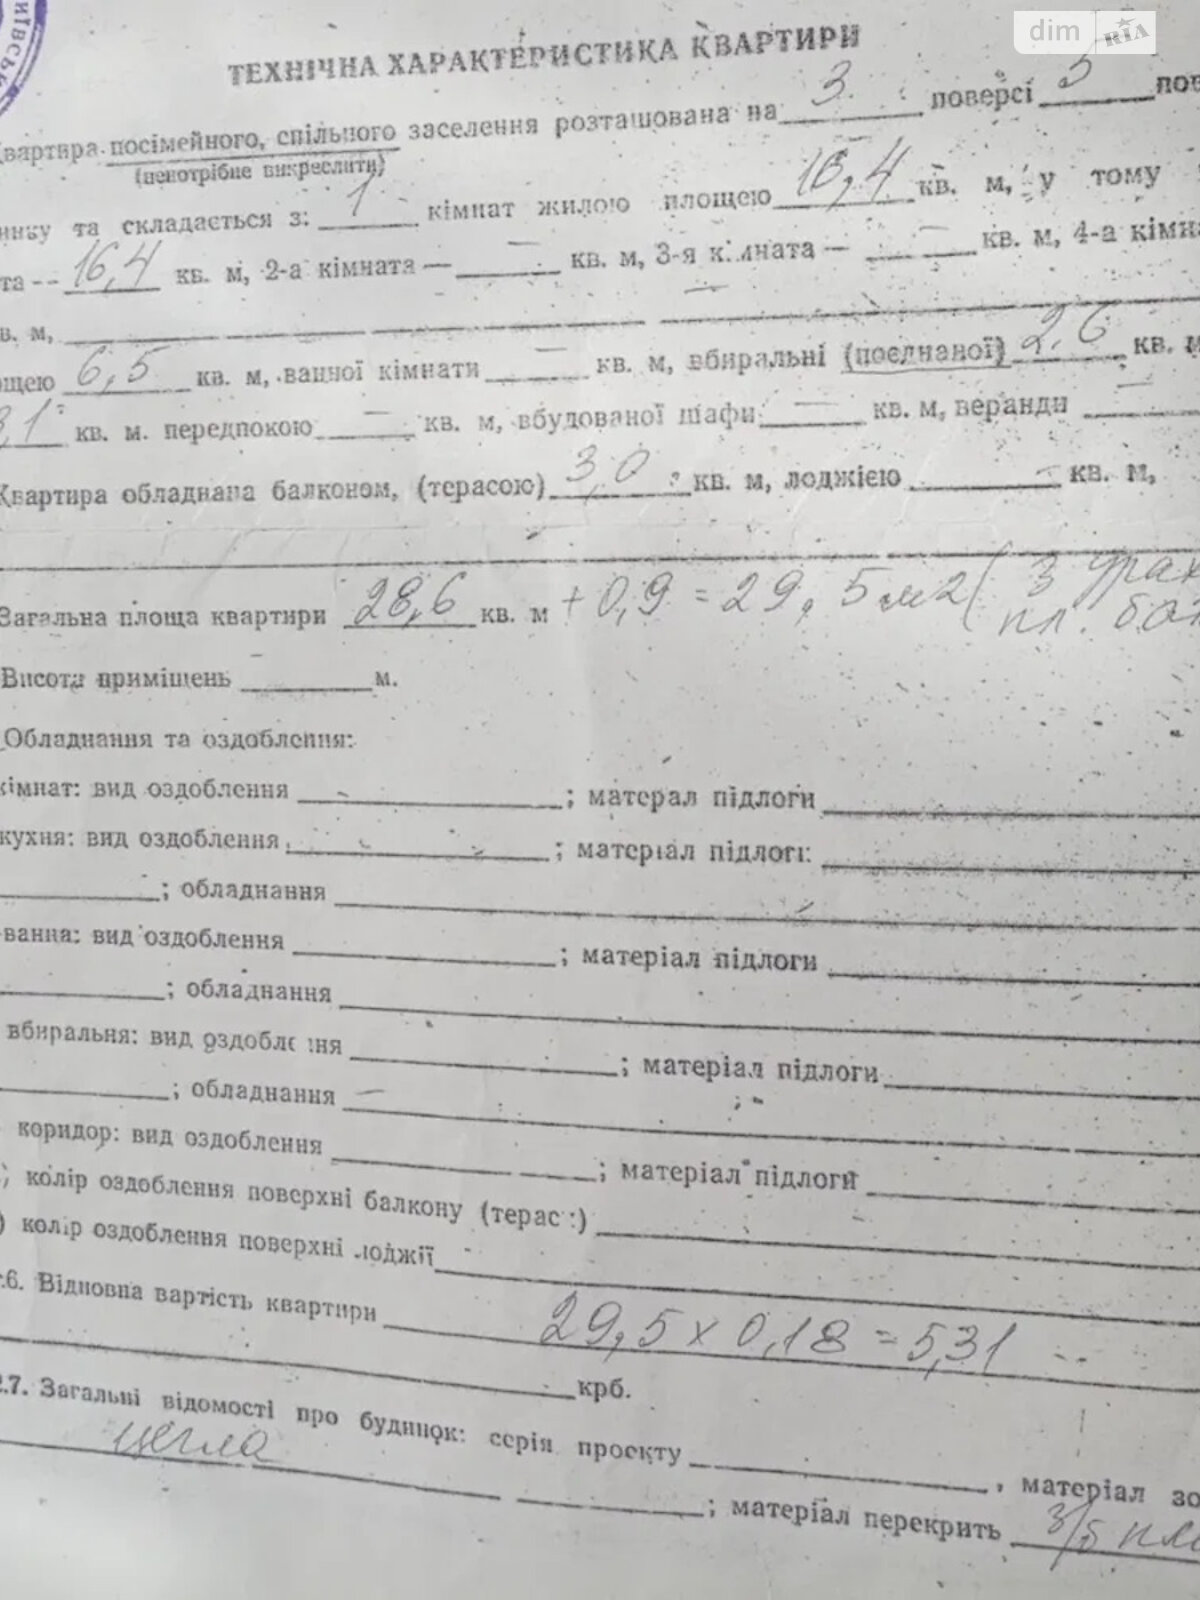 dim RIA
ТЕХНІЧНА ХАРАКТЕРИСТИКА КВАРТИРИ
Квартира посімейного, спільного заселення розташована на 3 поверсі 5 пов
(непотрібне викреслити)
инку та складається з: 1 кімнат жилою площею 16,4 кв. м, у тому
та -- 16,4 кв. м, 2-а кімната — — кв. м, 3-я кімната — — кв. м, 4-а кімна
в. м,
щею 6,5 кв. м, ванної кімнати — кв. м, вбиральні (поєднаної) 2,6 кв. м
3,1 кв. м. передпокою — кв. м, вбудованої шафи — кв. м, веранди —
Квартира обладнана балконом, (терасою) 3,0 кв. м, лоджією — кв. м,
Загальна площа квартири 28,6 кв. м + 0,9 = 29,5 м2 ( з урах
пл. бал
Висота приміщень м.
Обладнання та оздоблення:
кімнат: вид оздоблення ; матерал підлоги
кухня: вид оздоблення ; матеріал підлоги
; обладнання
ванна: вид оздоблення ; матеріал підлоги
; обладнання
вбиральня: вид оздоблення ; матеріал підлоги
; обладнання
коридор: вид оздоблення ; матеріал підлоги
) колір оздоблення поверхні балкону (терас :)
) колір оздоблення поверхні лоджії
2.6. Відновна вартість квартири 29,5 х 0,18 = 5,31
крб.
2.7. Загальні відомості про будинок: серія проекту , матеріал зо
цегла ; матеріал перекрить з/б пли